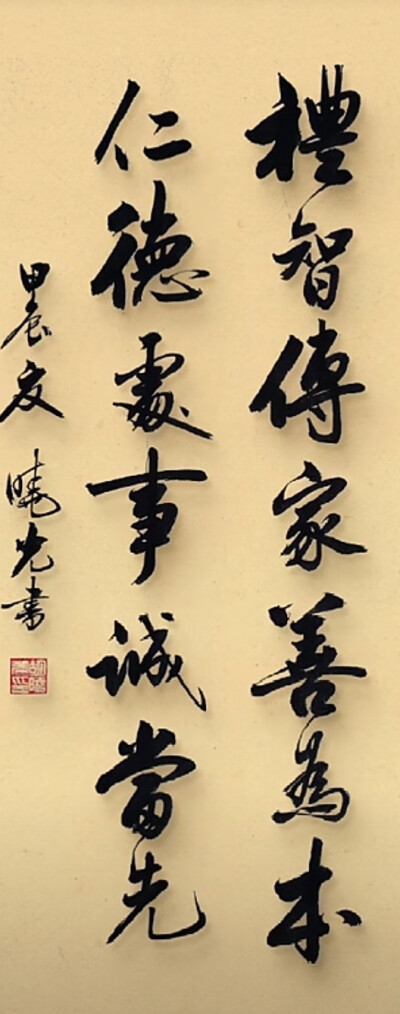 禮智傳家善為本
仁德處事誠當先
甲辰夏曉光書